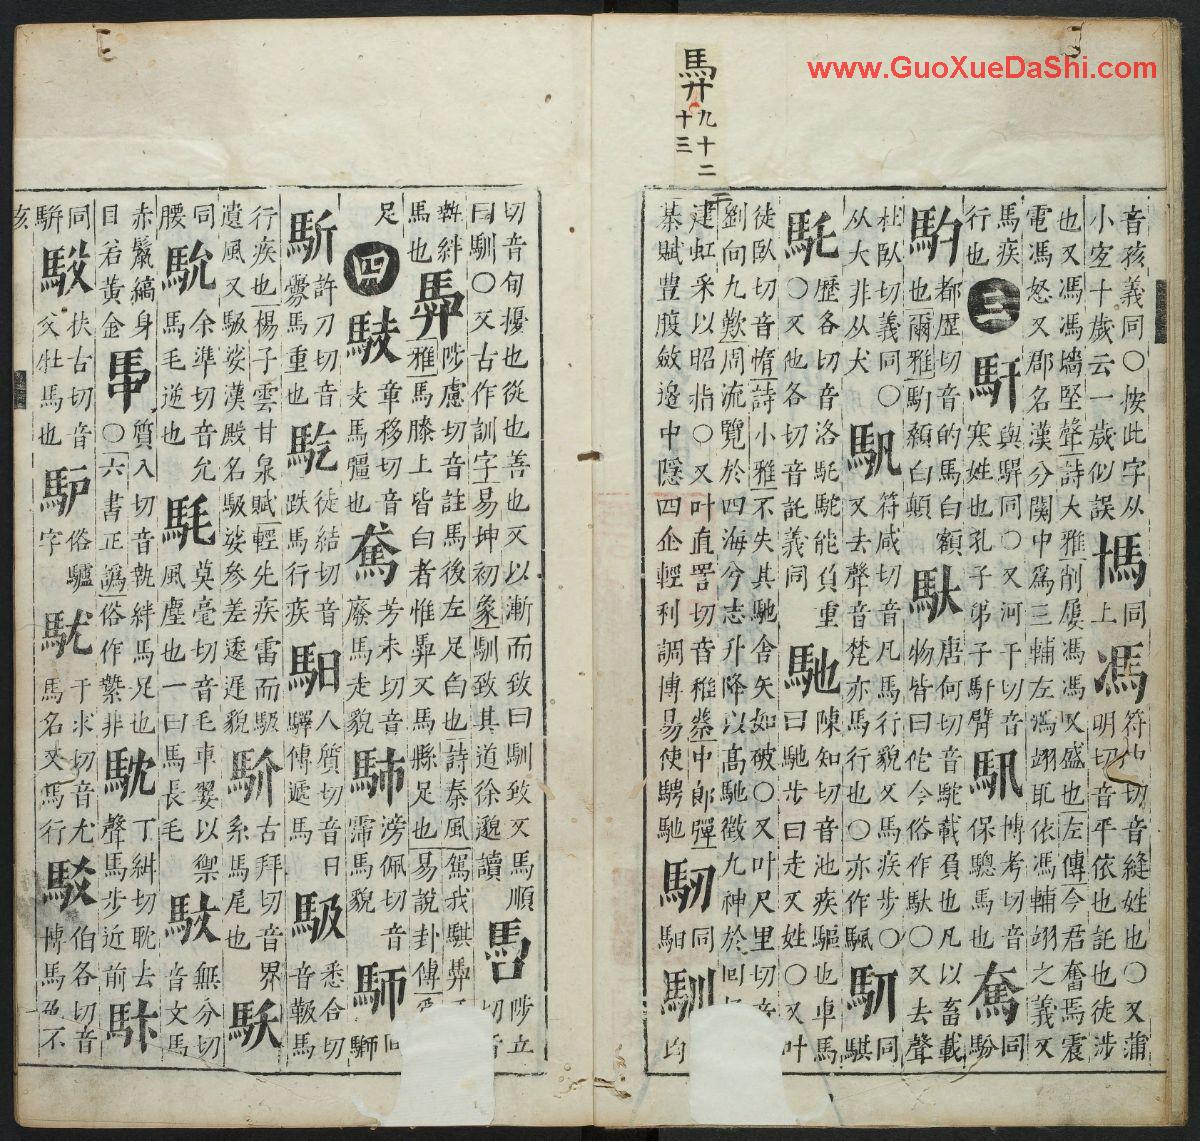 www.GuoXueDaShi.com
馵 九十二
十三
音孩義同○按此字从
小㝎十歲云一歲似誤
同
上
馮
符中切音縫姓也○又蒲
明切音平依也託也徒涉
也又馮馮墻堅聲詩大雅削屢馮馮又盛也左傳今君奮馬震
電馮怒又郡名漢分関中爲三輔左馮翊耴依馮輔翊之義又
馬疾
行也
三
馯
與駻同○又河干切音
寒姓也孔子弟子馯臂
博考切音
保驄馬也
同
馚
馰
都歷切音的馬白額
也爾雅馰顙白顛
馱
唐何切音駝載負也凡以畜載
物皆曰佗今俗作馱○又去聲
杜臥切義同○
从大非从犬
符咸切音凡馬行貌又馬疾步○
又去聲音梵亦馬行也○亦作颿
同
騏
馲
歷各切音洛馲駝能負重
○又他各切音託義同
馳
陳知切音池疾驅也車馬
曰馳步曰走又姓○又叶
徒臥切音惰詩小雅不失其馳舍矢如破○又叶尺里切音
劉向九歎周流覽於四海兮志升降以高馳徵九神於回
建虹采以昭指○又叶直詈切音稚蔡中郎彈
棊賦豊腹斂邊中隱四企輕利調博易使騁馳
同
馹
馴
均
切音旬擾也從也善也又以漸而致曰馴致又馬順
曰馴○又古作訓字易坤初象馴致其道徐邈讀
陟立
切音
縶絆
馬也
馵
陟慮切音註馬後左足白也詩秦風駕我騏馵
雅馬膝上皆白者惟馵又馬縣足也易說卦傳
足
四
馶
章移切音
支馬彊也
芳未切音
廢馬走貌
滂佩切音
霈馬貌
同
馸
許刀切音
釁馬重也
徒結切音
跌馬行疾
馹
人質切音日
驛傳遞馬
馺
悉合切
音靸馬
行疾也楊子雲甘泉賦輕先疾雷而馺
遺風又馺娑漢殿名馺娑參差逶遲貌
䯰
古拜切音界
系馬尾也
䭿
同
腰
馻
余準切音允
馬毛逆也
䭷
莫毫切音毛車翣以禦
風塵也一曰馬長毛
馼
無分切
音文馬
赤鬣縞身
目若黃金
馽
質入切音執絆馬足也
○六書正譌俗作縶非
丁糾切耽去
聲馬步近前
同
駢
扶古切音
父牡馬也
馿
俗驢
字
于求切音尤
馬名又馬行
駁
伯各切音
博馬色不